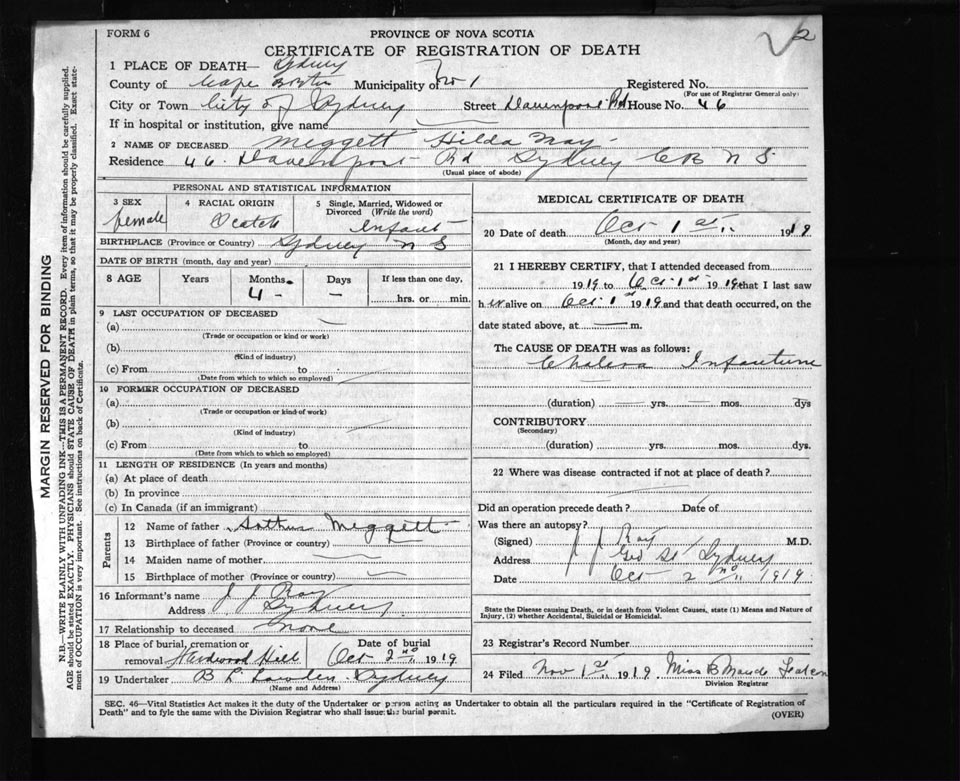 FORM 6
PROVINCE OF NOVA SCOTIA
2
CERTIFICATE OF REGISTRATION OF DEATH
1 PLACE OF DEATH— Sydney
County of Cape Breton Municipality of No 1 Registered No.
(For use of Registrar General only)
City or Town City of Sydney Street Davenport Rd House No. 46
If in hospital or institution, give name
2 NAME OF DECEASED Meggett Hilda May
Residence 46 Davenport Rd Sydney C B N S
(Usual place of abode)
PERSONAL AND STATISTICAL INFORMATION
3 SEX female
4 RACIAL ORIGIN Scotch
5 Single, Married, Widowed or Divorced (Write the word) Infant
BIRTHPLACE (Province or Country) Sydney N S
DATE OF BIRTH (month, day and year)
8 AGE Years Months Days If less than one day,
4 – — hrs. or min.
9 LAST OCCUPATION OF DECEASED
(a)
(Trade or occupation or kind or work)
(b)
(Kind of industry)
(c) From to
(Date from which to which so employed)
10 FORMER OCCUPATION OF DECEASED
(a)
(Trade or occupation or kind of work)
(b)
(Kind of industry)
(c) From to
(Date from which to which so employed)
11 LENGTH OF RESIDENCE (In years and months)
(a) At place of death
(b) In province
(c) In Canada (if an immigrant)
Parents
12 Name of father Arthur Meggett
13 Birthplace of father (Province or country)
14 Maiden name of mother
15 Birthplace of mother (Province or country)
16 Informant's name J J Roy
Address Sydney
17 Relationship to deceased none
18 Place of burial, cremation or removal Hardwood Hill
Date of burial Oct 2nd 1919
19 Undertaker B L Sydney
(Name and Address)
MEDICAL CERTIFICATE OF DEATH
20 Date of death Oct 1st 1919
(Month, day and year)
21 I HEREBY CERTIFY, that I attended deceased from
1919 to Oct 1st 1919 that I last saw
h er alive on Oct 1st 1919 and that death occurred, on the
date stated above, at — m.
The CAUSE OF DEATH was as follows:
Cholera Infantum
(duration) yrs. mos. dys
CONTRIBUTORY
(Secondary)
(duration) yrs. mos. dys.
22 Where was disease contracted if not at place of death?
Did an operation precede death? Date of
Was there an autopsy?
(Signed) J J Roy M.D.
Address Geo St Sydney
Date Oct 2nd 1919
State the Disease causing Death, or in death from Violent Causes, state (1) Means and Nature of
Injury, (2) whether Accidental, Suicidal or Homicidal.
23 Registrar's Record Number
24 Filed Nov 1st 1919 Miss B Maude
Division Registrar
SEC. 46—Vital Statistics Act makes it the duty of the Undertaker or person acting as Undertaker to obtain all the particulars required in the "Certificate of Registration of
Death" and to fyle the same with the Division Registrar who shall issue the burial permit.
(OVER)
MARGIN RESERVED FOR BINDING
N.B.—WRITE PLAINLY WITH UNFADING INK—THIS IS A PERMANENT RECORD. Every item of information should be carefully supplied.
AGE should be stated EXACTLY. PHYSICIANS should STATE CAUSE OF DEATH in plain terms, so that it may be properly classified. Exact state-
ment of OCCUPATION is very important. See instructions on back of Certificate.